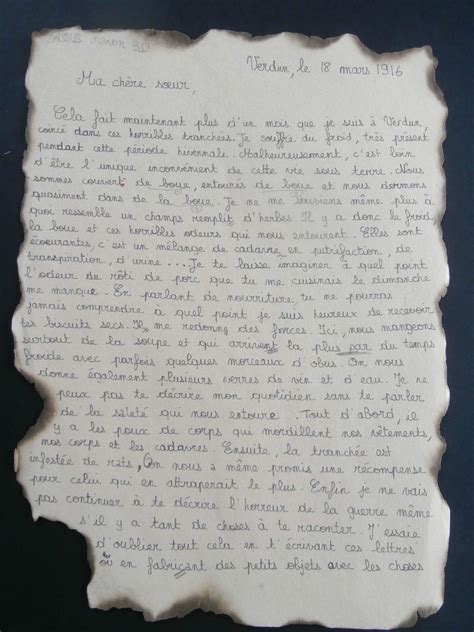 CASSUS Manon 3D
Verdun, le 18 mars 1916
Ma chère sœur,
Cela fait maintenant plus d'un mois que je suis à Verdun,
coincé dans ces horribles tranchées. Je souffre du froid, très présent
pendant cette période hivernale. Malheureusement, c'est loin
d'être l'unique inconvénient de cette vie sous terre. Nous
sommes couvert de boue, entourés de boue et nous dormons
quasiment dans de la boue. Je ne me souviens même plus à
quoi ressemble un champs remplit d'herbes. Il y a donc le froid,
la boue et ces horribles odeurs qui nous entourent. Elles sont
écoeurantes, c'est un mélange de cadavre en putréfaction, de
transpiration, d'urine... Je te laisse imaginer à quel point
l'odeur de rôti de porc que tu me cuisinais le dimanche
me manque. En parlant de nourriture, tu ne pourras
jamais comprendre à quel point je suis heureux de recevoir
tes biscuits secs. Ils me redonne des forces. Ici, nous mangeons
surtout de la soupe et qui arrivent la plus par du temps
froide avec parfois quelques morceaux d'obus. On nous
donne également plusieurs verres de vin et d'eau. Je ne
peux pas te décrire mon quotidien sans te parler
de la saleté qui nous entoure. Tout d'abord, il
y a les poux de corps qui mordillent nos vêtements,
nos corps et les cadavres. Ensuite, la tranchée est
infestée de rats, On nous a même promis une récompense
pour celui qui en attraperait le plus. Enfin je ne vais
pas continuer à te décrire l'horreur de la guerre même
s'il y a tant de choses à te raconter. J'essaie
d'oublier tout cela en t'écrivant ces lettres
où en fabriçant des petits objets avec les choses